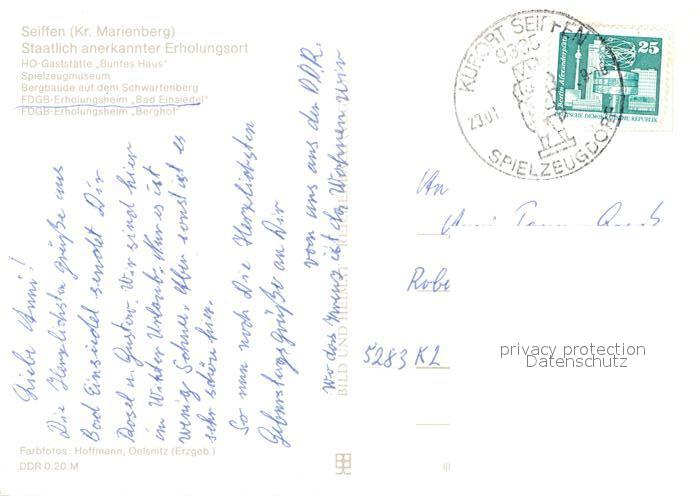 Seiffen (Kr. Marienberg)
Staatlich anerkannter Erholungsort
HO-Gaststätte „Buntes Haus"
Spielzeugmuseum
Bergbaude auf dem Schwartenberg
FDGB-Erholungsheim „Bad Einsiedel"
FDGB-Erholungsheim „Berghof"
Liebe Anni!
Die Herzlichsten Grüße aus
Bad Einsiedel sendet Dir
u. Gustav. Wir sind hier
im Winter Urlaub. Nur es ist
wenig Schnee. Aber sonst ist es
sehr schön hier.
So nun noch die Herzlichsten
Geburtstagsgrüße an Dir
von uns aus der DDR.
Wo das Kreuz ist da Wohnen wir
BILD UND HEIMAT REICHENBACH
Farbfotos: Hoffmann, Oelsnitz (Erzgeb.)
DDR 0.20 M
KURORT SEIFFEN
9335
SPIELZEUGDORF
25
Berlin, Alexanderplatz
DEUTSCHE DEMOKRATISCHE REPUBLIK
An
Robe
5283 Kl
privacy protection
Datenschutz